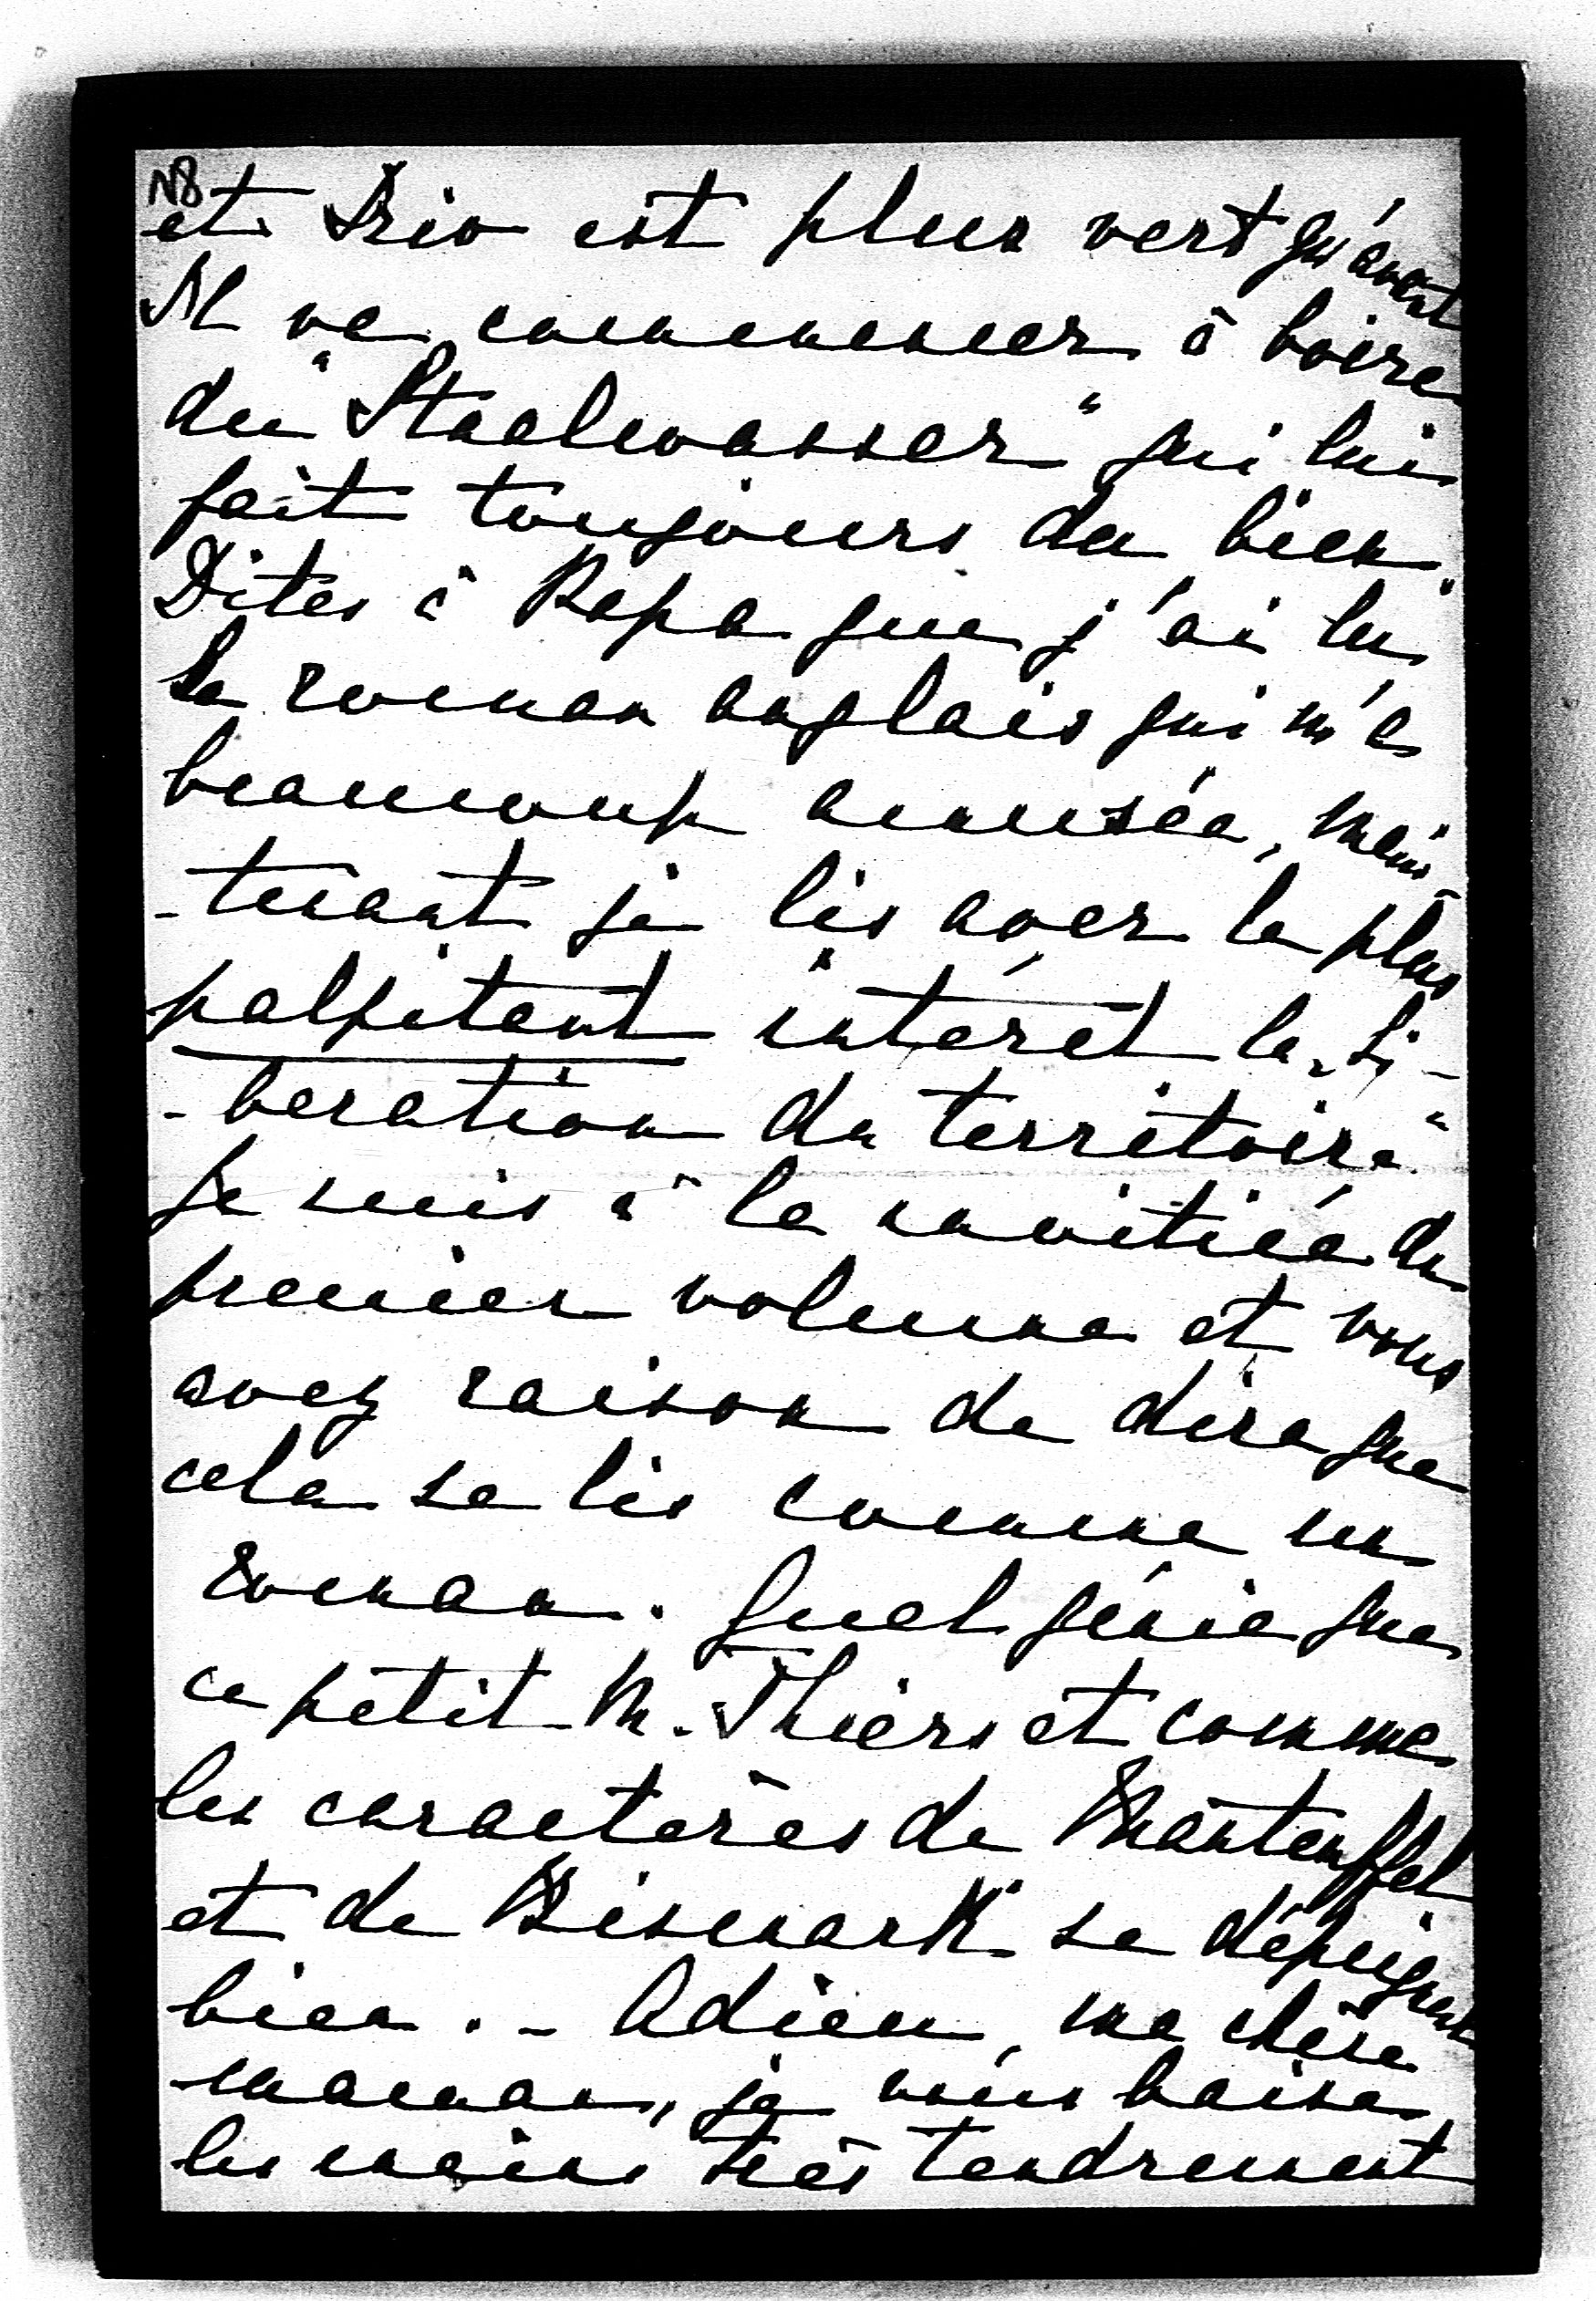 N8
et Trio est plus vert qu'avant
Il va commencer à boire
du "Staalwasser" qui lui
fait toujours du bien.
Dites à Papa que j'ai lu
le roman anglais qui m'a
beaucoup amusée, main-
-tenant je lis avec le plus
palpitant intérêt la "Li-
-beration du territoire"
Je suis à la moitiée du
premier volume et vous
avez raison de dire que
cela se lis comme un
roman. Quel génie que
ce petit M. Thiers et comme
les caractères de Manteuffel
et de Bismark se dépeignent
bien. - Adieu, ma chère
maman, je vous baise
les mains très tendrement